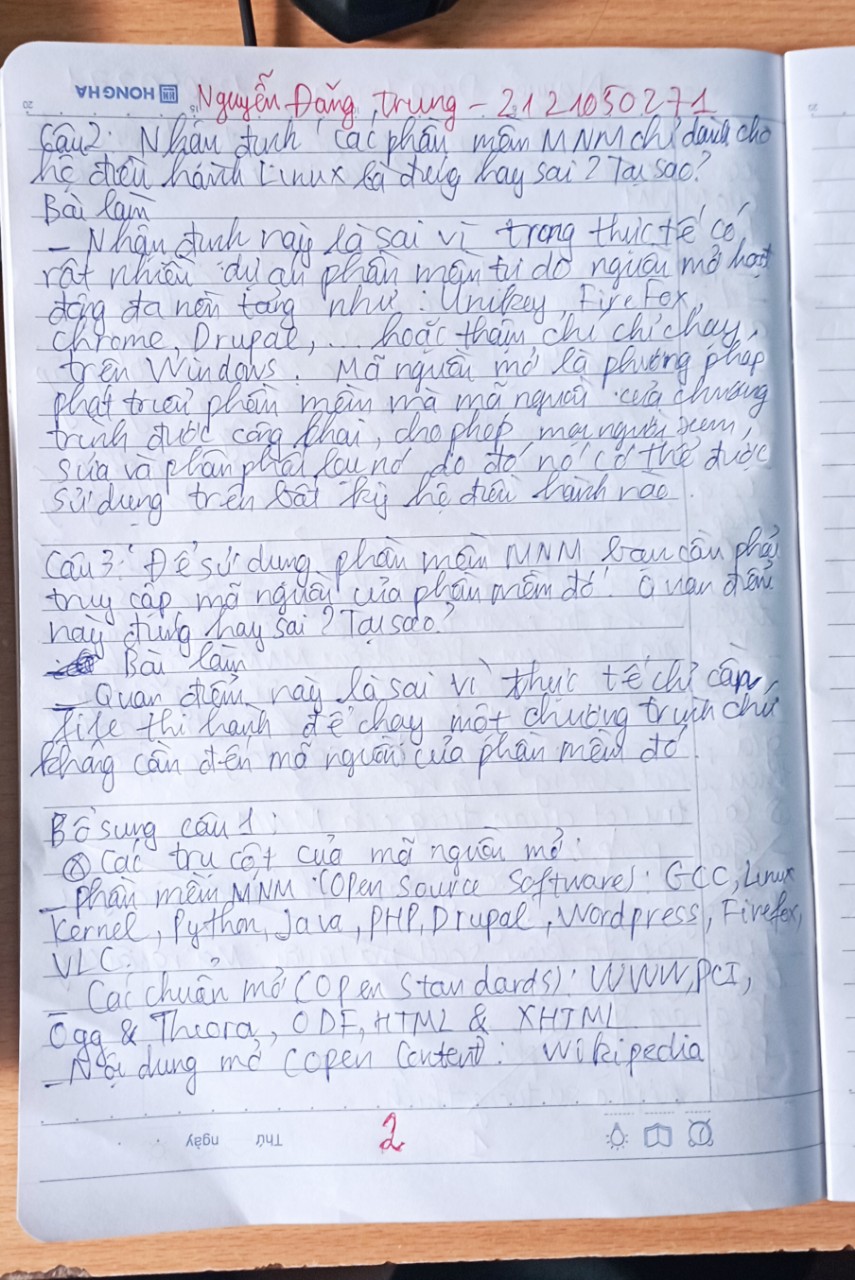 HONG HA
Nguyễn Đăng Trung - 2121050271
Câu 2: Nhận định các phần mềm MNM chỉ dành cho
hệ điều hành Linux là đúng hay sai? Tại sao?
Bài làm
- Nhận định này là sai vì trong thực tế có
rất nhiều dự án phần mềm tự do nguồn mở hoạt
động đa nền tảng như: Unikey, FireFox,
Chrome, Drupal, ... hoặc thậm chí chỉ chạy
trên Windows. Mã nguồn mở là phương pháp
phát triển phần mềm mà mã nguồn của chương
trình được công khai, cho phép mọi người xem,
sửa và phân phối lại nó do đó nó có thể được
sử dụng trên bất kỳ hệ điều hành nào.
Câu 3: Để sử dụng phần mềm MNM bạn cần phải
truy cập mã nguồn của phần mềm đó. Quan điểm
này đúng hay sai? Tại sao?
Bài làm
- Quan điểm này là sai vì thực tế chỉ cần
file thi hành để chạy một chương trình chứ
không cần đến mã nguồn của phần mềm đó.
Bổ sung câu 1:
Các trụ cột của mã nguồn mở:
- Phần mềm MNM (Open Source Software): GCC, Linux
Kernel, Python, Java, PHP, Drupal, Wordpress, Firefox,
VLC.
- Các chuẩn mở (Open Standards): WWW, PCI,
Ogg & Theora, ODF, HTML & XHTML
- Nội dung mở (Open Content): Wikipedia
2
Thứ ngày